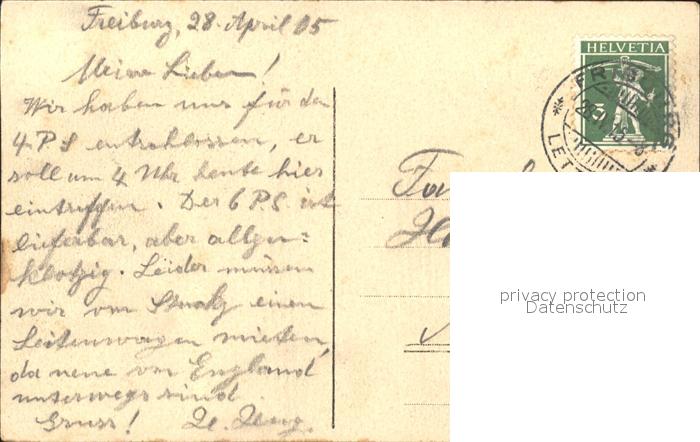 Freiburg, 28. April 05
Meine Lieben!
Wir haben uns für den
4 PS entschlossen, er
soll um 4 Uhr heute hier
eintreffen. Der 6 P.S. ist
lieferbar, aber allzu=
klotzig. Leider müssen
wir von einen
Leitenwagen mieten,
da neue von England
unterwegs sind
Gruss!
HELVETIA
privacy protection
Datenschutz